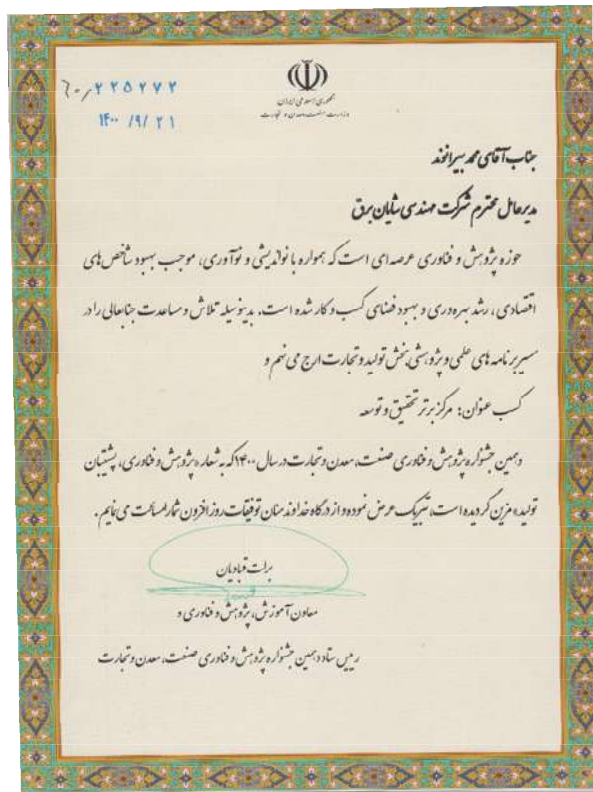 ۶۰/۲۲۵۲۷۲
۱۴۰۰/۹/۲۱
جمهوری اسلامی ایران
وزارت صنعت، معدن و تجارت
جناب آقای محمد بیرانوند
مدیرعامل محترم شرکت مهندسی شایان برق
حوزه پژوهش و فناوری عرصه ای است که همواره با نواندیشی و نوآوری، موجب بهبود شاخص های
اقتصادی، رشد بهره وری و بهبود فضای کسب و کار شده است. بدینوسیله تلاش و مساعدت جنابعالی را در
مسیر برنامه های علمی و پژوهشی بخش تولید و تجارت ارج می نهم و
کسب عنوان: مرکز برتر تحقیق و توسعه
دهمین جشنواره پژوهش و فناوری صنعت، معدن و تجارت در سال ۱۴۰۰ که به شعار «پژوهش و فناوری، پشتیبان
تولید» مزین گردیده است، تبریک عرض نموده و از درگاه خداوند منان توفیقات روزافزون شما را مسألت می نمایم.
برات قبادیان
معاون آموزش، پژوهش و فناوری و
رییس ستاد دهمین جشنواره پژوهش و فناوری صنعت، معدن و تجارت